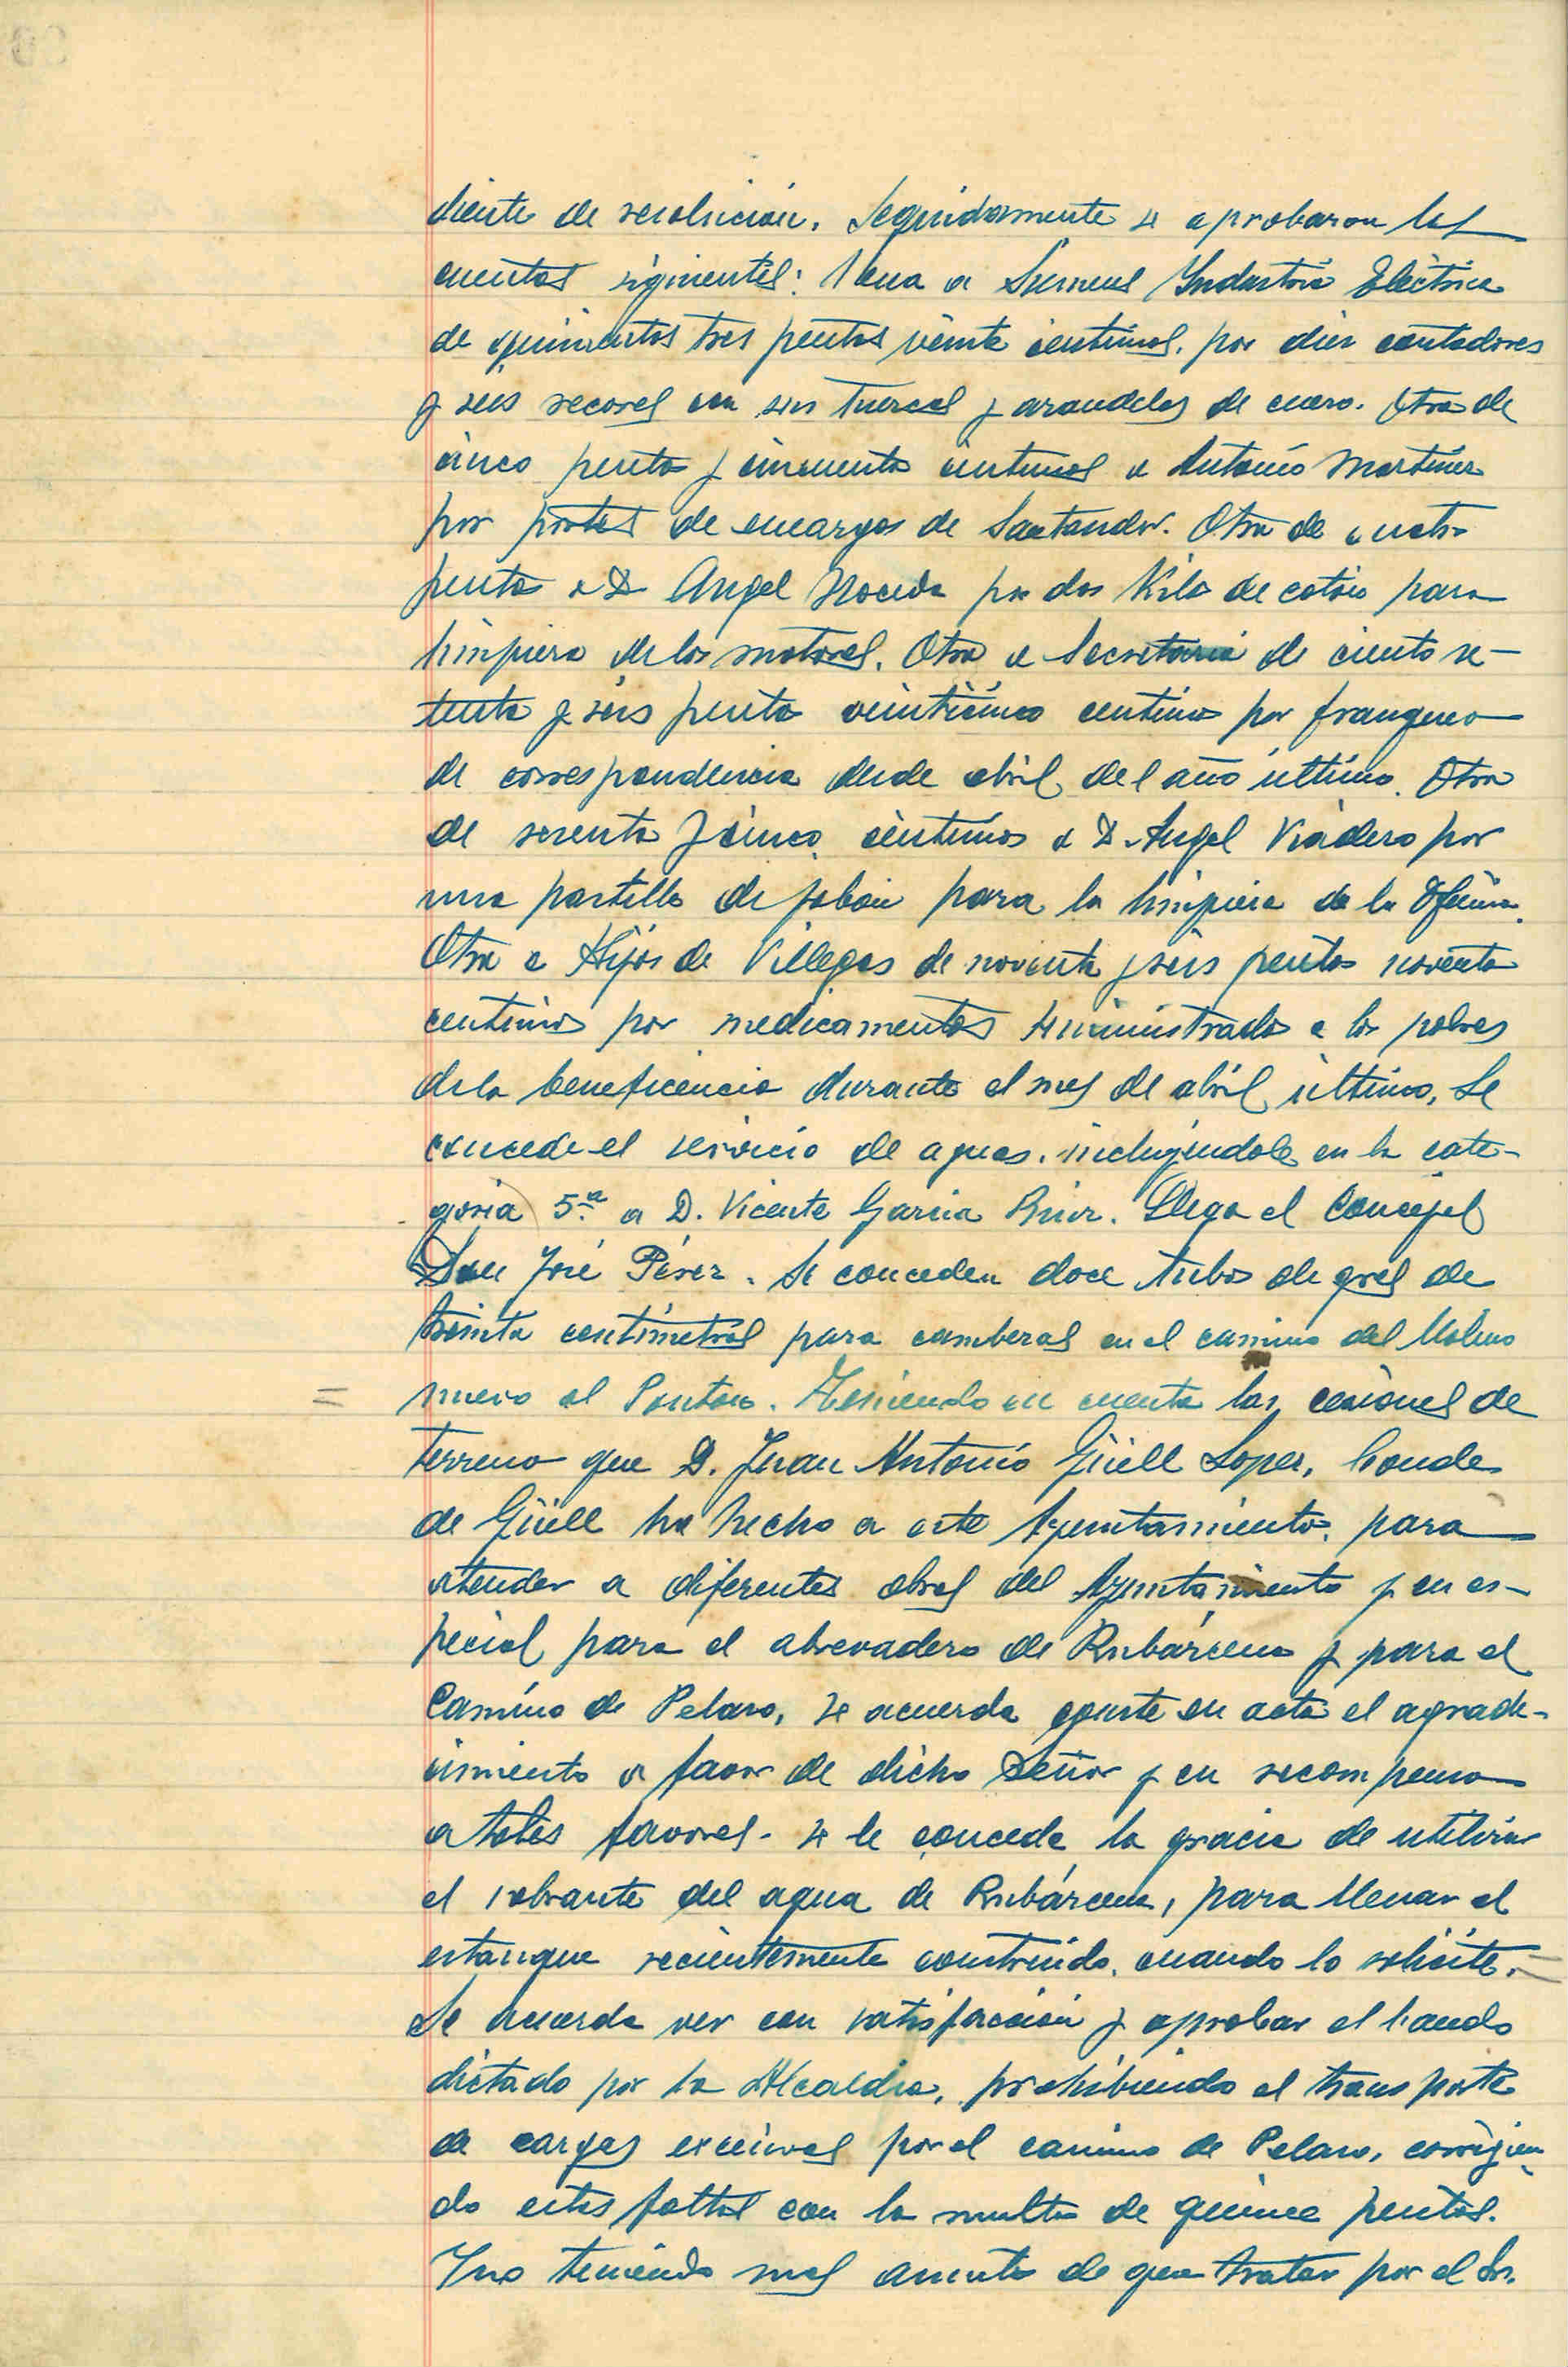 diente de resolución. Seguidamente se aprobaron las
cuentas siguientes: Una a Siemens Industria Eléctrica
de quinientas tres pesetas veinte centimos, por diez contadores
y seis racores con sus tuercas y arandelas de cuero. Otra de
cinco pesetas y cincuenta centimos a Antonio Martinez
por portes de encargos de Santander. Otra de cuatro
pesetas a D. Angel Noceda por dos Kilos de coton para
limpieza de los motores. Otra a Secretaria de ciento se-
tenta y seis pesetas veinticinco centimos por franqueo
de correspondencia desde abril del año último. Otra
de sesenta y cinco centimos a D. Angel Viadero por
una pastilla de jabón para la limpieza de la Oficina.
Otra a Hijos de Villegas de noventa y seis pesetas noventa
centimos por medicamentos suministrados a los pobres
de la beneficencia durante el mes de abril último. Se
concede el servicio de aguas, incluyéndole en la cate-
goria 5.ª a D. Vicente Garcia Ruiz. Llega el Concejal
Don José Pérez. Se conceden doce tubos de gres de
treinta centímetros para camberas en el camino del Molino
nuevo al Ponton. Teniendo en cuenta las cesiones de
terreno que D. Juan Antonio Güell Lopez, Conde
de Güell ha hecho a este Ayuntamiento, para
atender a diferentes obras del Ayuntamiento y en es-
pecial para el abrevadero de Rubárcena y para el
Camino de Pelazo, se acuerda conste en acta el agrade-
cimiento a favor de dicho Señor y en recompensa
a tales favores, se le concede la gracia de utilizar
el sobrante del agua de Rubárcena, para llenar el
estanque recientemente construido, cuando lo solicite. =
Se acuerda ver con satisfacción y aprobar el bando
dictado por la Alcaldia, prohibiendo el transporte
de cargas excesivas por el camino de Pelazo, corrigien-
do estas faltas con la multa de quince pesetas.
Y no teniendo mas asuntos de que tratar por el Sr.